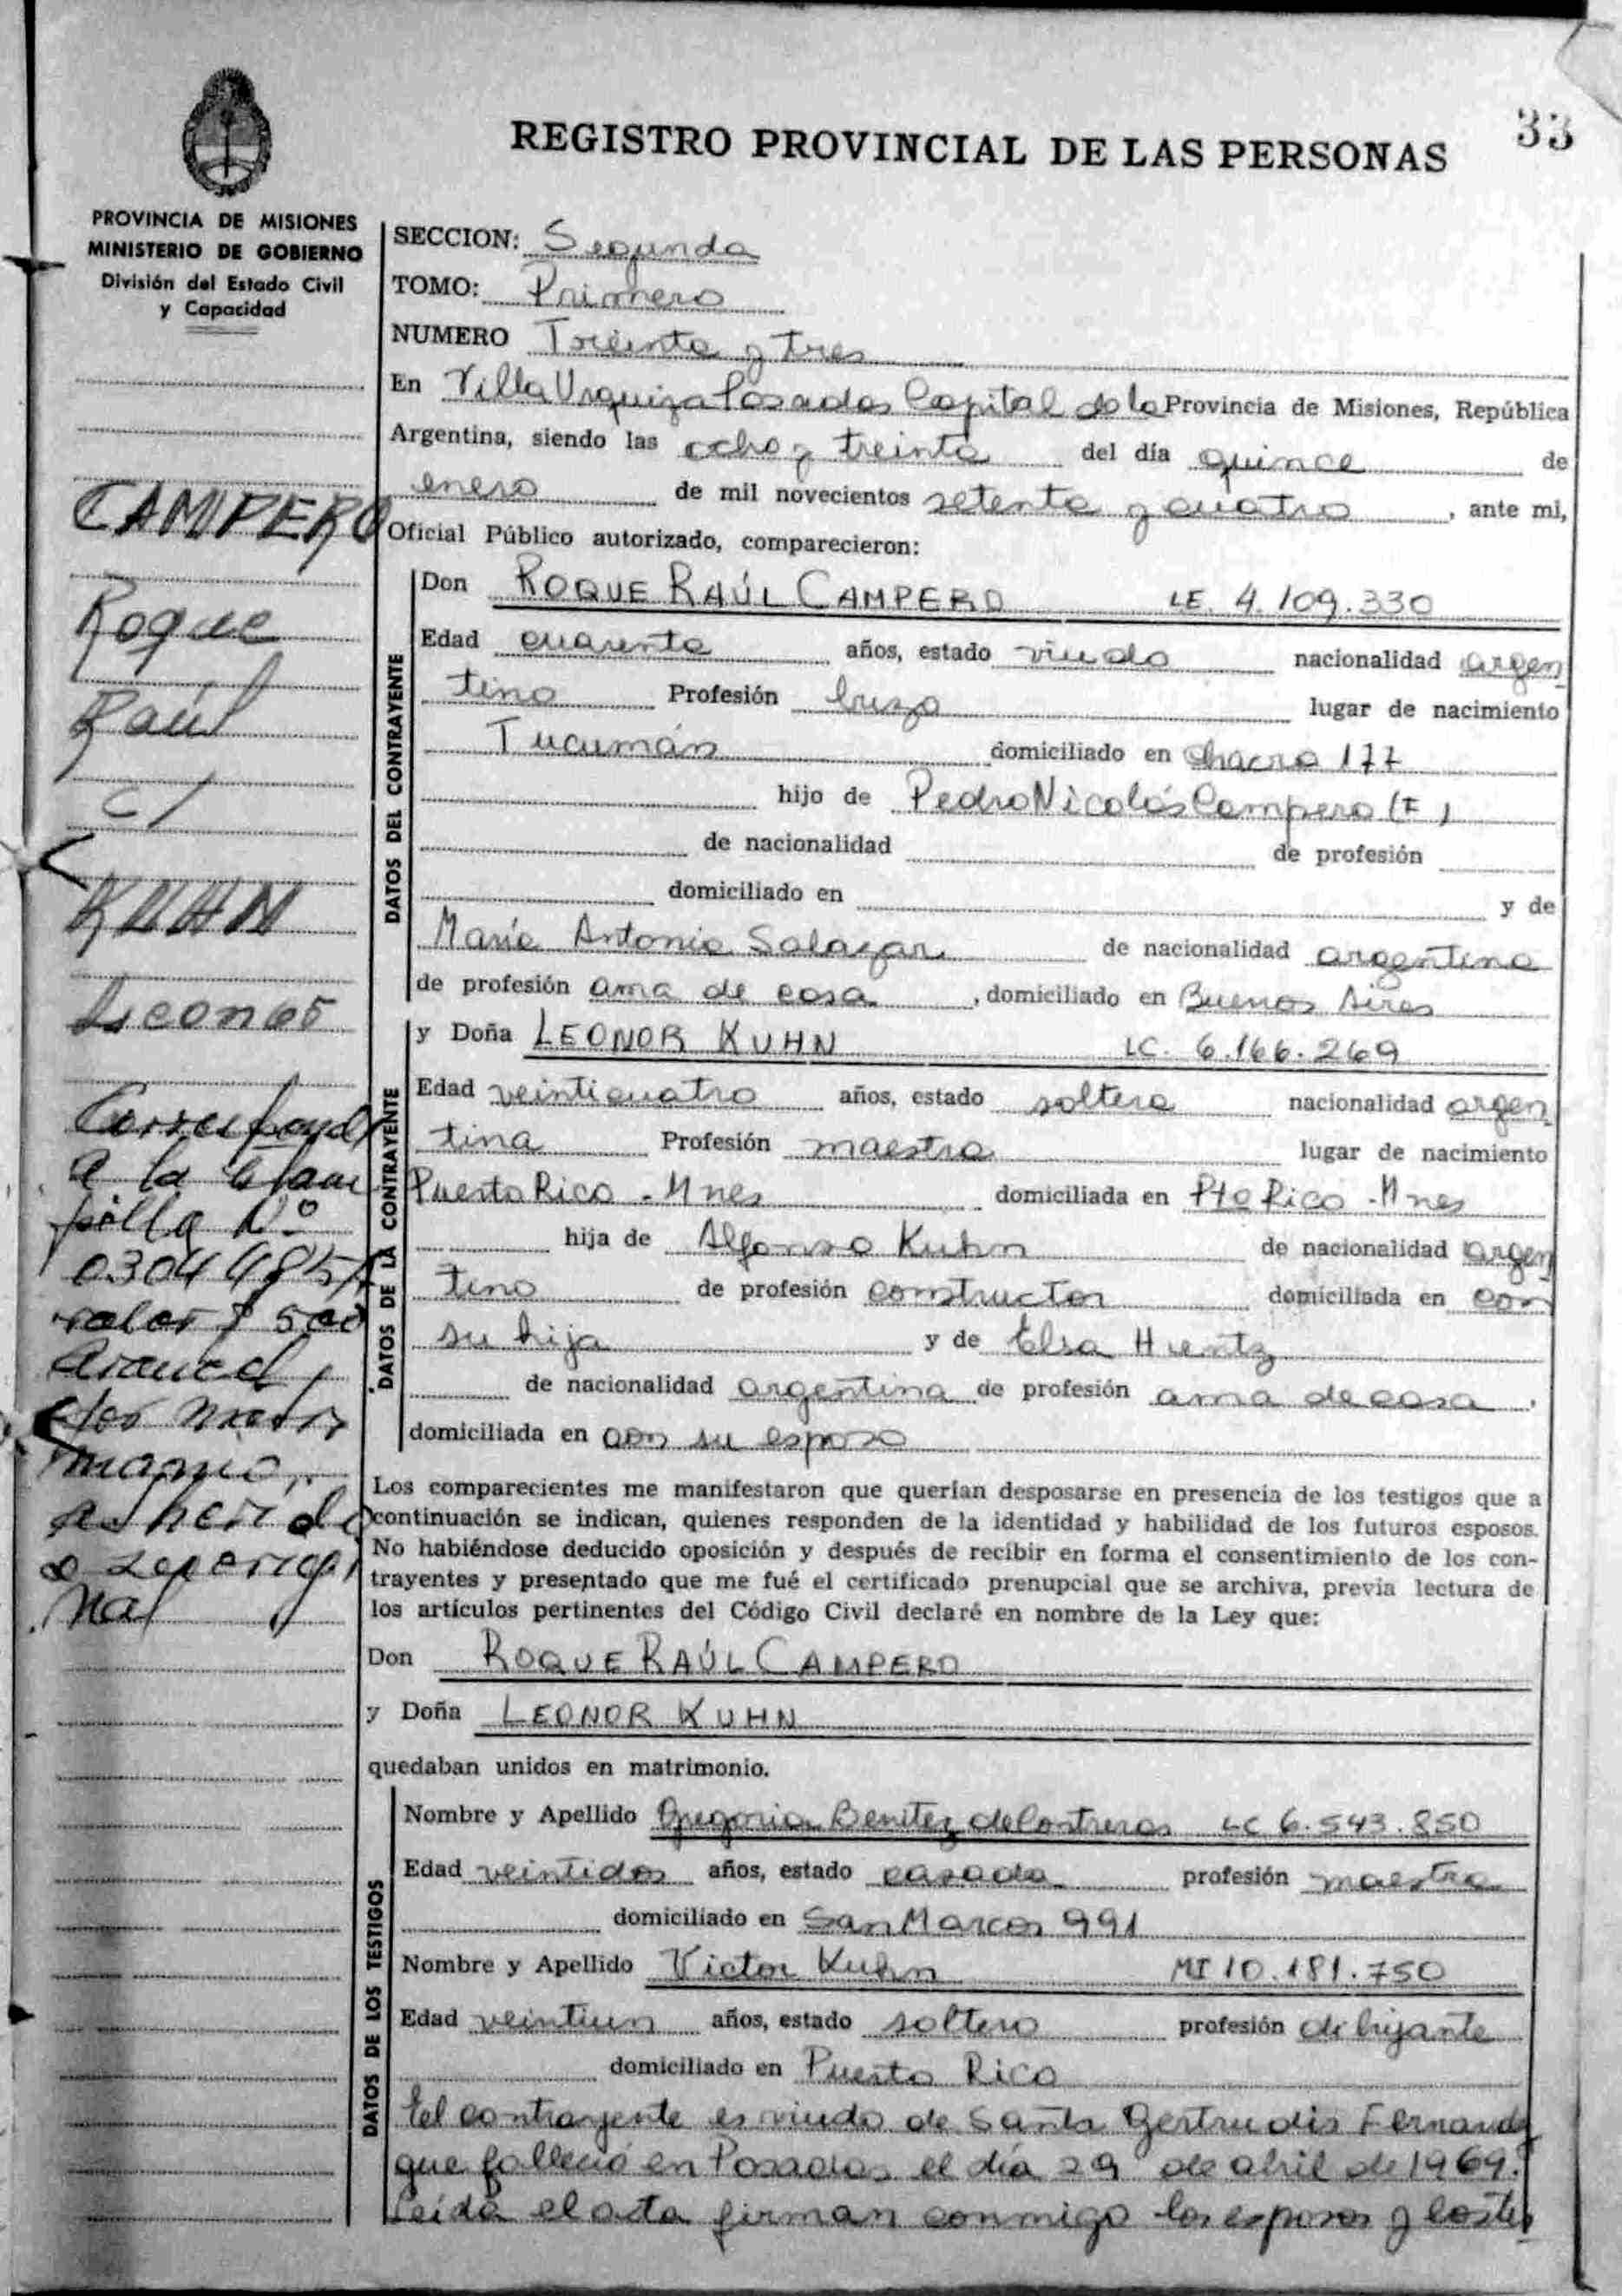 33
REGISTRO PROVINCIAL DE LAS PERSONAS
PROVINCIA DE MISIONES
MINISTERIO DE GOBIERNO
División del Estado Civil
y Capacidad
CAMPERO
Roque
Raúl
c/
KUHN
Leonor
Corresponde
a la Estam
pilla Nº
valor $ 500
Arancel
SECCION: Segunda
TOMO: Primero
NUMERO Treinta y tres
En Villa Urquiza Posadas Capital de la Provincia de Misiones, República
Argentina, siendo las ocho y treinta del día quince de
enero de mil novecientos setenta y cuatro, ante mi,
Oficial Público autorizado, comparecieron:
DATOS DEL CONTRAYENTE
Don ROQUE RAÚL CAMPERO LE. 4.109.330
Edad cuarenta años, estado viudo nacionalidad argen
tino Profesión buzo lugar de nacimiento
Tucumán domiciliado en Chacra 177
hijo de Pedro Nicolás Campero (F)
de nacionalidad de profesión
domiciliado en y de
María Antonia Salazar de nacionalidad argentina
de profesión ama de casa, domiciliado en Buenos Aires
DATOS DE LA CONTRAYENTE
y Doña LEONOR KUHN LC. 6.166.269
Edad veinticuatro años, estado soltera nacionalidad argen
tina Profesión maestra lugar de nacimiento
Puerto Rico - Mnes domiciliada en Pto Rico - Mnes
hija de Alfonso Kuhn de nacionalidad argen
tino de profesión constructor domiciliada en con
su hija y de Elsa Hentz
de nacionalidad argentina de profesión ama de casa.
domiciliada en con su esposo
Los comparecientes me manifestaron que querían desposarse en presencia de los testigos que a
continuación se indican, quienes responden de la identidad y habilidad de los futuros esposos.
No habiéndose deducido oposición y después de recibir en forma el consentimiento de los con-
trayentes y presentado que me fué el certificado prenupcial que se archiva, previa lectura de
los artículos pertinentes del Código Civil declaré en nombre de la Ley que:
Don ROQUE RAÚL CAMPERO
y Doña LEONOR KUHN
quedaban unidos en matrimonio.
DATOS DE LOS TESTIGOS
Nombre y Apellido Gregoria Benitez de Contreras LC 6.543.850
Edad veintidos años, estado casada profesión maestra
domiciliado en San Marcos 991
Nombre y Apellido Victor Kuhn MI 10.181.750
Edad veintiun años, estado soltero profesión dibujante
domiciliado en Puerto Rico
El contrayente es viudo de Santa Gertrudis Fernandez
que falleció en Posadas el día 29 de abril de 1969.
Leída el acta firman conmigo los esposos y los tes